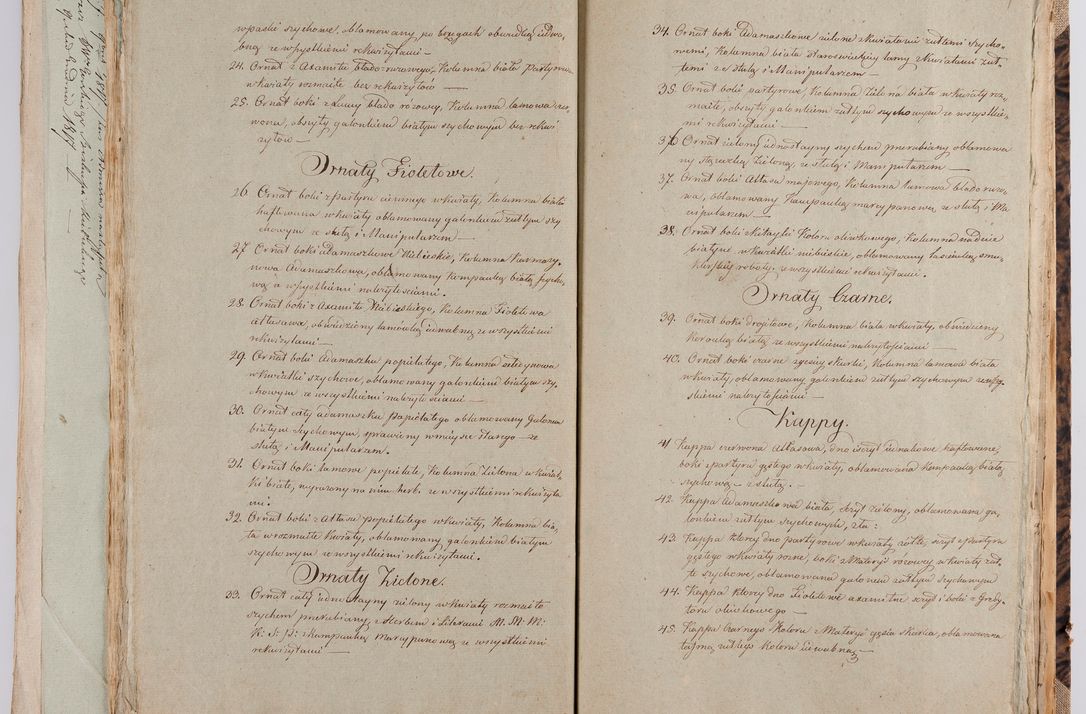 wpaski szychowe, oblamowany po brzegach obwodką
24. Ornat z Axamitu blado rozowego, Kolumna biała
w kwiaty rozmaite bez rekwizytow —
25. Ornat boki z Lamy blado rozowey, Kolumna lamowa
wona, obszyty galonkiem białym szychowym bez rekwi
zytow —
Ornaty Fioletowe.
26 Ornat boki z partyru ciemnego w kwiaty, Kolumna biała
haftowana w kwiaty oblamowany galonkiem żułtym szy
chowym ze stułą i Manipularzem —
27 Ornat boki Adamaszkowe Niebieskie, Kolumna Karmazy
nowa Adamaszkowa, oblamowany Kampanką białą szycho
wą z wszystkiemi należytościami.
28. Ornat boki z Axamitu Niebieskiego, Kolumna Fioletowa
Atłasowa, obwiedziony tamowką iedwabną ze wszystkiemi
rekwizytami —
29. Ornat boki Adamaszku popielatego, Kolumna
w kwiatki szychowe, oblamowany galonkiem białym szy
chowym ze wszystkiemi należytościami —
30. Ornat cały adamaszku popielatego oblamowany Galonem
białym Szychowym, sprawiony w mieysce starego ze
stułą i Manipularzem.
31. Ornat boki lamowe popielate, Kolumna Zielona w kwiat
ki białe, wyrazony na nim herb, ze wszystkiemi rekwizyta
mi.
32. Ornat boki z Atłasu popielatego w kwiaty, Kolumna bia
ła w rozmaite kwiaty, oblamowany galonkiem białym
szychowym ze wszystkiemi rekwizytami.
Ornaty Zielone.
33. Ornat cały iednostayny zielony w kwiaty rozmaite
szychem przerabiany z Herbem i Literami M. M: M:
K: S: P: z kampanką Marcypanową ze wszystkiemi
rekwizytami —
34. Ornat boki Adamaszkowe zielone z kwiatami żułtemi szycho
wemi, Kolumna biała staroswieckiey lamy z kwiatami żuł
temi ze stułą i Manipularzem —
35. Ornat boki partyrowe, Kolumna Zielona biała w kwiaty roz
maite, obszyty galonkiem żułtym szychowym ze wszystkie
mi rekwizytami —
36 Ornat zielony iednostayny szychem przerabiany oblamowa
ny stążeczką Zieloną, ze stułą i Manipularzem —
37. Ornat boki Atłasu majowego, Kolumna lamowa blado rozo
wa, oblamowany Kampanką marcypanową ze stułą i Ma
nipularzem —
38. Ornat boki z Kitayki Koloru oliwkowego, Kolumna
białym w kwiatki niebieskie, oblamowany tasiemką
roboty, ze wszystkiemi rekwizytami.
Ornaty Czarne.
39. Ornat boki drojetowe, Kolumna biała w kwiaty, obwiedziony
Koronką białą ze wszystkiemi należytościami —
40. Ornat boki czarne z gęsiey skurki, Kolumna lamowa biała
w kwiaty, oblamowany galonkiem żułtym szychowym ze wszy
stkiemi należytościami —
Kappy.
41 Kappa czerwona Atłasowa, dno i szczyt iedwabiem haftowane,
boki z partyru gęstego w kwiaty, oblamowana kampanką białą
szychową — z stułą. —
42. Kappa Adamaszkowa biała, szczyt zielony, oblamowana ga
lonkiem żułtym szychowym, zła:
43. Kappa ktorey dno partyrowe w kwiaty zółte, szczyt z partyru
gęstego w kwiaty rozne, boki z Materyi różowey w kwiaty żuł
te szychowe, oblamowana galonem żułtym Szychowym
44. Kappa ktorey dno Fioletowe axamitne szczyt i boki z Grody
toru oliwkowego —
45. Kappa Czarnego Koloru z Materyi gęsia skurka, oblamowana
taśmą żułtego Koloru iedwabną